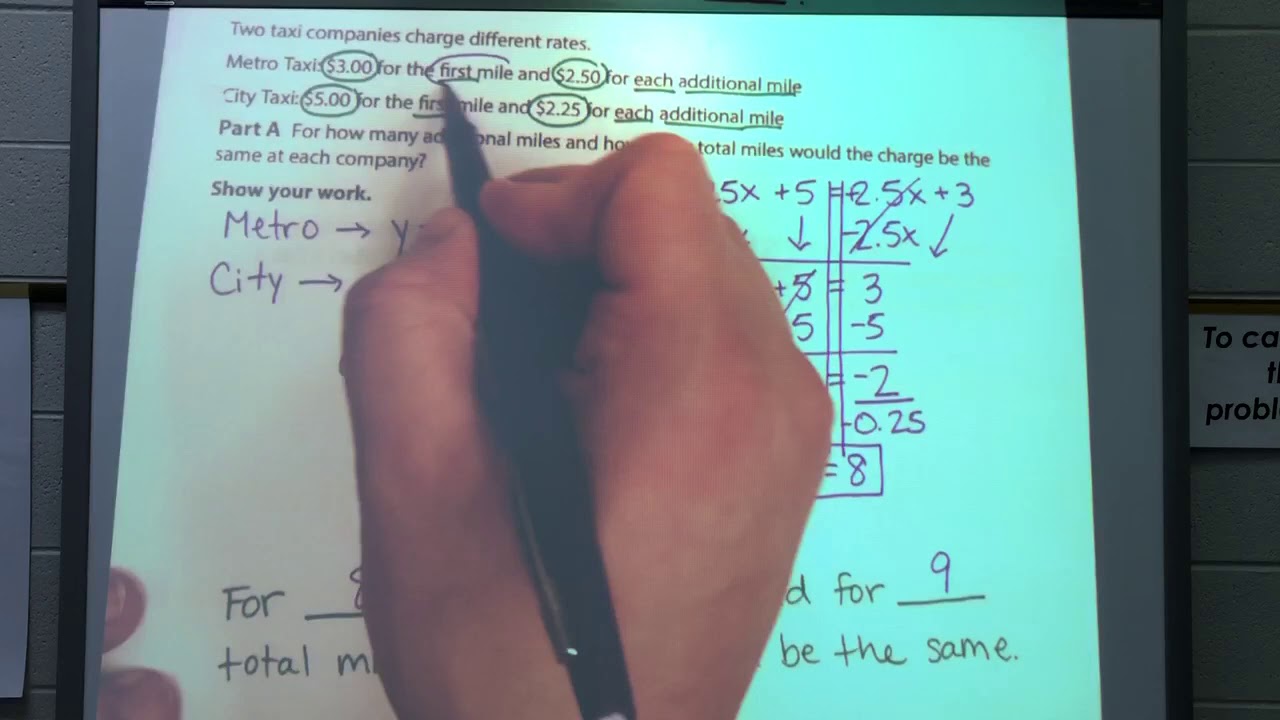 Two taxi companies charge different rates.
Metro Taxi: $3.00 for the first mile and $2.50 for each additional mile
City Taxi: $5.00 for the first mile and $2.25 for each additional mile
Part A For how many ad onal miles and ho total miles would the charge be the
same at each company?
Show your work.
Metro → y= .5x + 5 = 2.5x + 3
↓ -2.5x ↓
City → + 5 = 3
5 -5
= -2
-0.25
= 8
For 8 d for 9
total m be the same.
To ca
th
probl